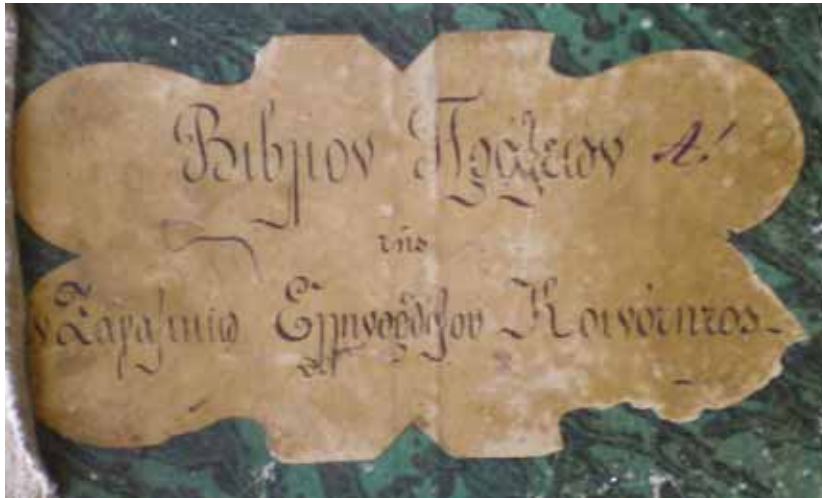 Βιβλίον Πράξεων Α!
τῆς
ν Ζαγαζικίῳ Ἑλληνορθοδόξου Κοινότητος